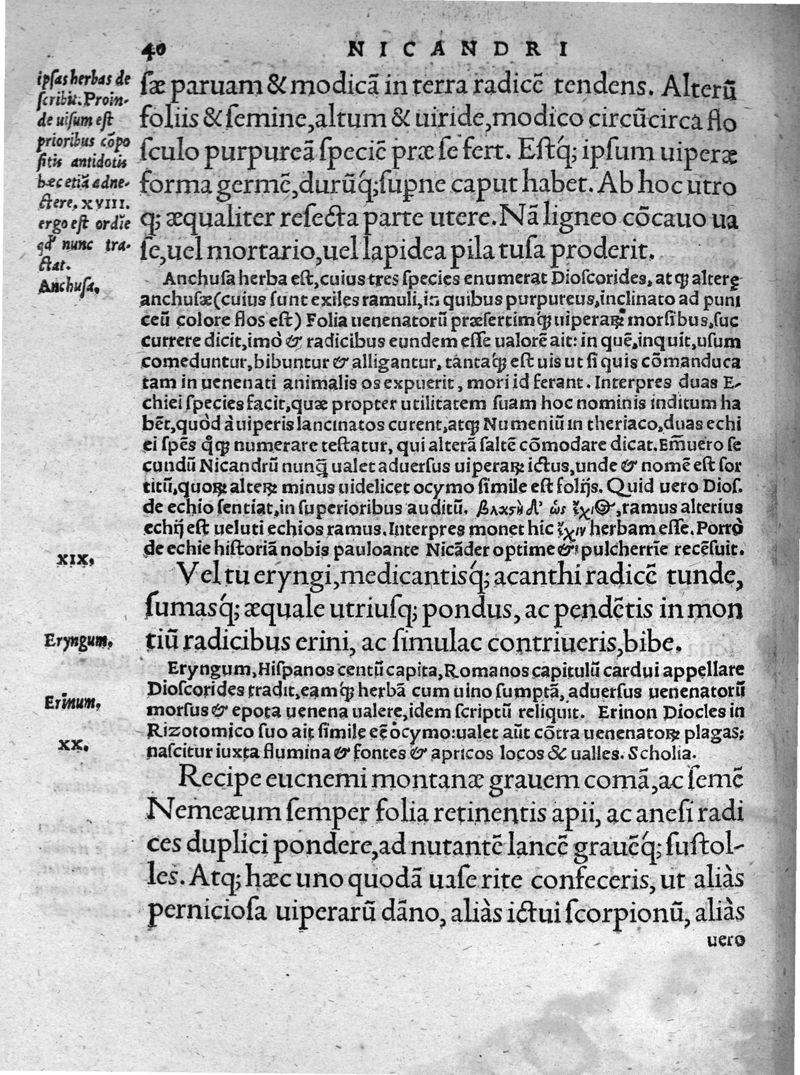 40 NICANDRI
ipſas herbas de
ſcribit. Proin-
de uiſum eſt
prioribus cõpo
ſitis antidotis
hæc etiã adne-
ctere, XVIII.
ergo eſt ordie
nunc tra-
ctat.
Anchuſa,
ſæ paruam & modicã in terra radicẽ tendens. Alterũ
foliis & ſemine, altum & uiride, modico circũcirca flo
ſculo purpureã ſpeciẽ præ ſe fert. Eſtq; ipſum uiperæ
forma germẽ, durũq; ſupne caput habet. Ab hoc utro
q; æqualiter reſecta parte utere. Nã ligneo cõcauo ua
ſe, uel mortario, uel lapidea pila tuſa proderit.
Anchuſa herba eſt, cuius tres ſpecies enumerat Dioſcorides, atq; alterę
anchuſæ (cuius ſunt exiles ramuli, in quibus purpureus, inclinato ad puni
ceũ colore flos eſt) Folia uenenatorũ præſertimq; uiperaꝝ morſibus, ſuc
currere dicit, imò & radicibus eundem eſſe ualorẽ ait: in quẽ, inquit, uſum
comeduntur, bibuntur & alligantur, tãtaq; eſt uis ut ſi quis cõmanduca
tam in uenenati animalis os expuerit, mori id ferant. Interpres duas E-
chiei ſpecies facit, quæ propter utilitatem ſuam hoc nominis inditum ha
bẽt, quòd à uiperis lancinatos curent, atq; Numeniũ in theriaco, duas echi
ei ſpẽs numerare teſtatur, qui alterã ſaltẽ cõmodare dicat. Em̃uero ſe
cundũ Nicandrũ nunq̃ ualet aduerſus uiperaꝝ ictus, unde & nomẽ eſt ſor
titũ, quoꝝ alteꝝ minus uidelicet ocymo ſimile eſt folijs. Quid uero Dioſ.
de echio ſentiat, in ſuperioribus auditũ. ὡς ramus alterius
echij eſt ueluti echios ramus. Interpres monet hic ἔχιν herbam eſſe. Porrò
de echie hiſtoriã nobis pauloante Nicãder optime & pulcherrĩe recẽſuit.
XIX,
Vel tu eryngi, medicantisq; acanthi radicẽ tunde,
ſumasq; æquale utriuſq; pondus, ac pendẽtis in mon
tiũ radicibus erini, ac ſimulac contriueris, bibe.
Eryngum,
Eryngum, Hiſpanos centũ capita, Romanos capitulũ cardui appellare
Dioſcorides tradit, eamq; herbã cum uino ſumptã, aduerſus uenenatorũ
morſus & epota uenena ualere, idem ſcriptũ reliquit. Erinon Diocles in
Rizotomico ſuo ait ſimile eẽ ocymo: ualet aũt cõtra uenenatoꝝ plagas;
naſcitur iuxta flumina & fontes & apricos locos & ualles. Scholia.
Erinum,
XX,
Recipe eucnemi montanæ grauem comã, ac ſemẽ
Nemeæum ſemper folia retinentis apii, ac aneſi radi
ces duplici pondere, ad nutantẽ lancẽ grauẽq; ſuſtol-
les. Atq; hæc uno quodã uaſe rite confeceris, ut aliàs
pernicioſa uiperarũ dãno, aliàs ictui ſcorpionũ, aliàs
uero